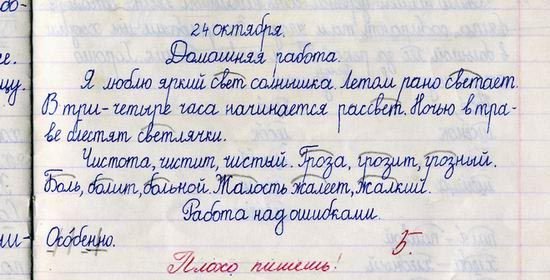 24 октября.
Домашняя работа.
Я люблю яркий свет солнышка. Летом рано светает.
В три-четыре часа начинается рассвет. Ночью в тра-
ве блестят светлячки.
Чистота, чистит, чистый. Гроза, грозит, грозный.
Боль, болит, больной. Жалость жалеет, жалкий.
Работа над ошибками.
Особенно.
5.
Плохо пишешь!